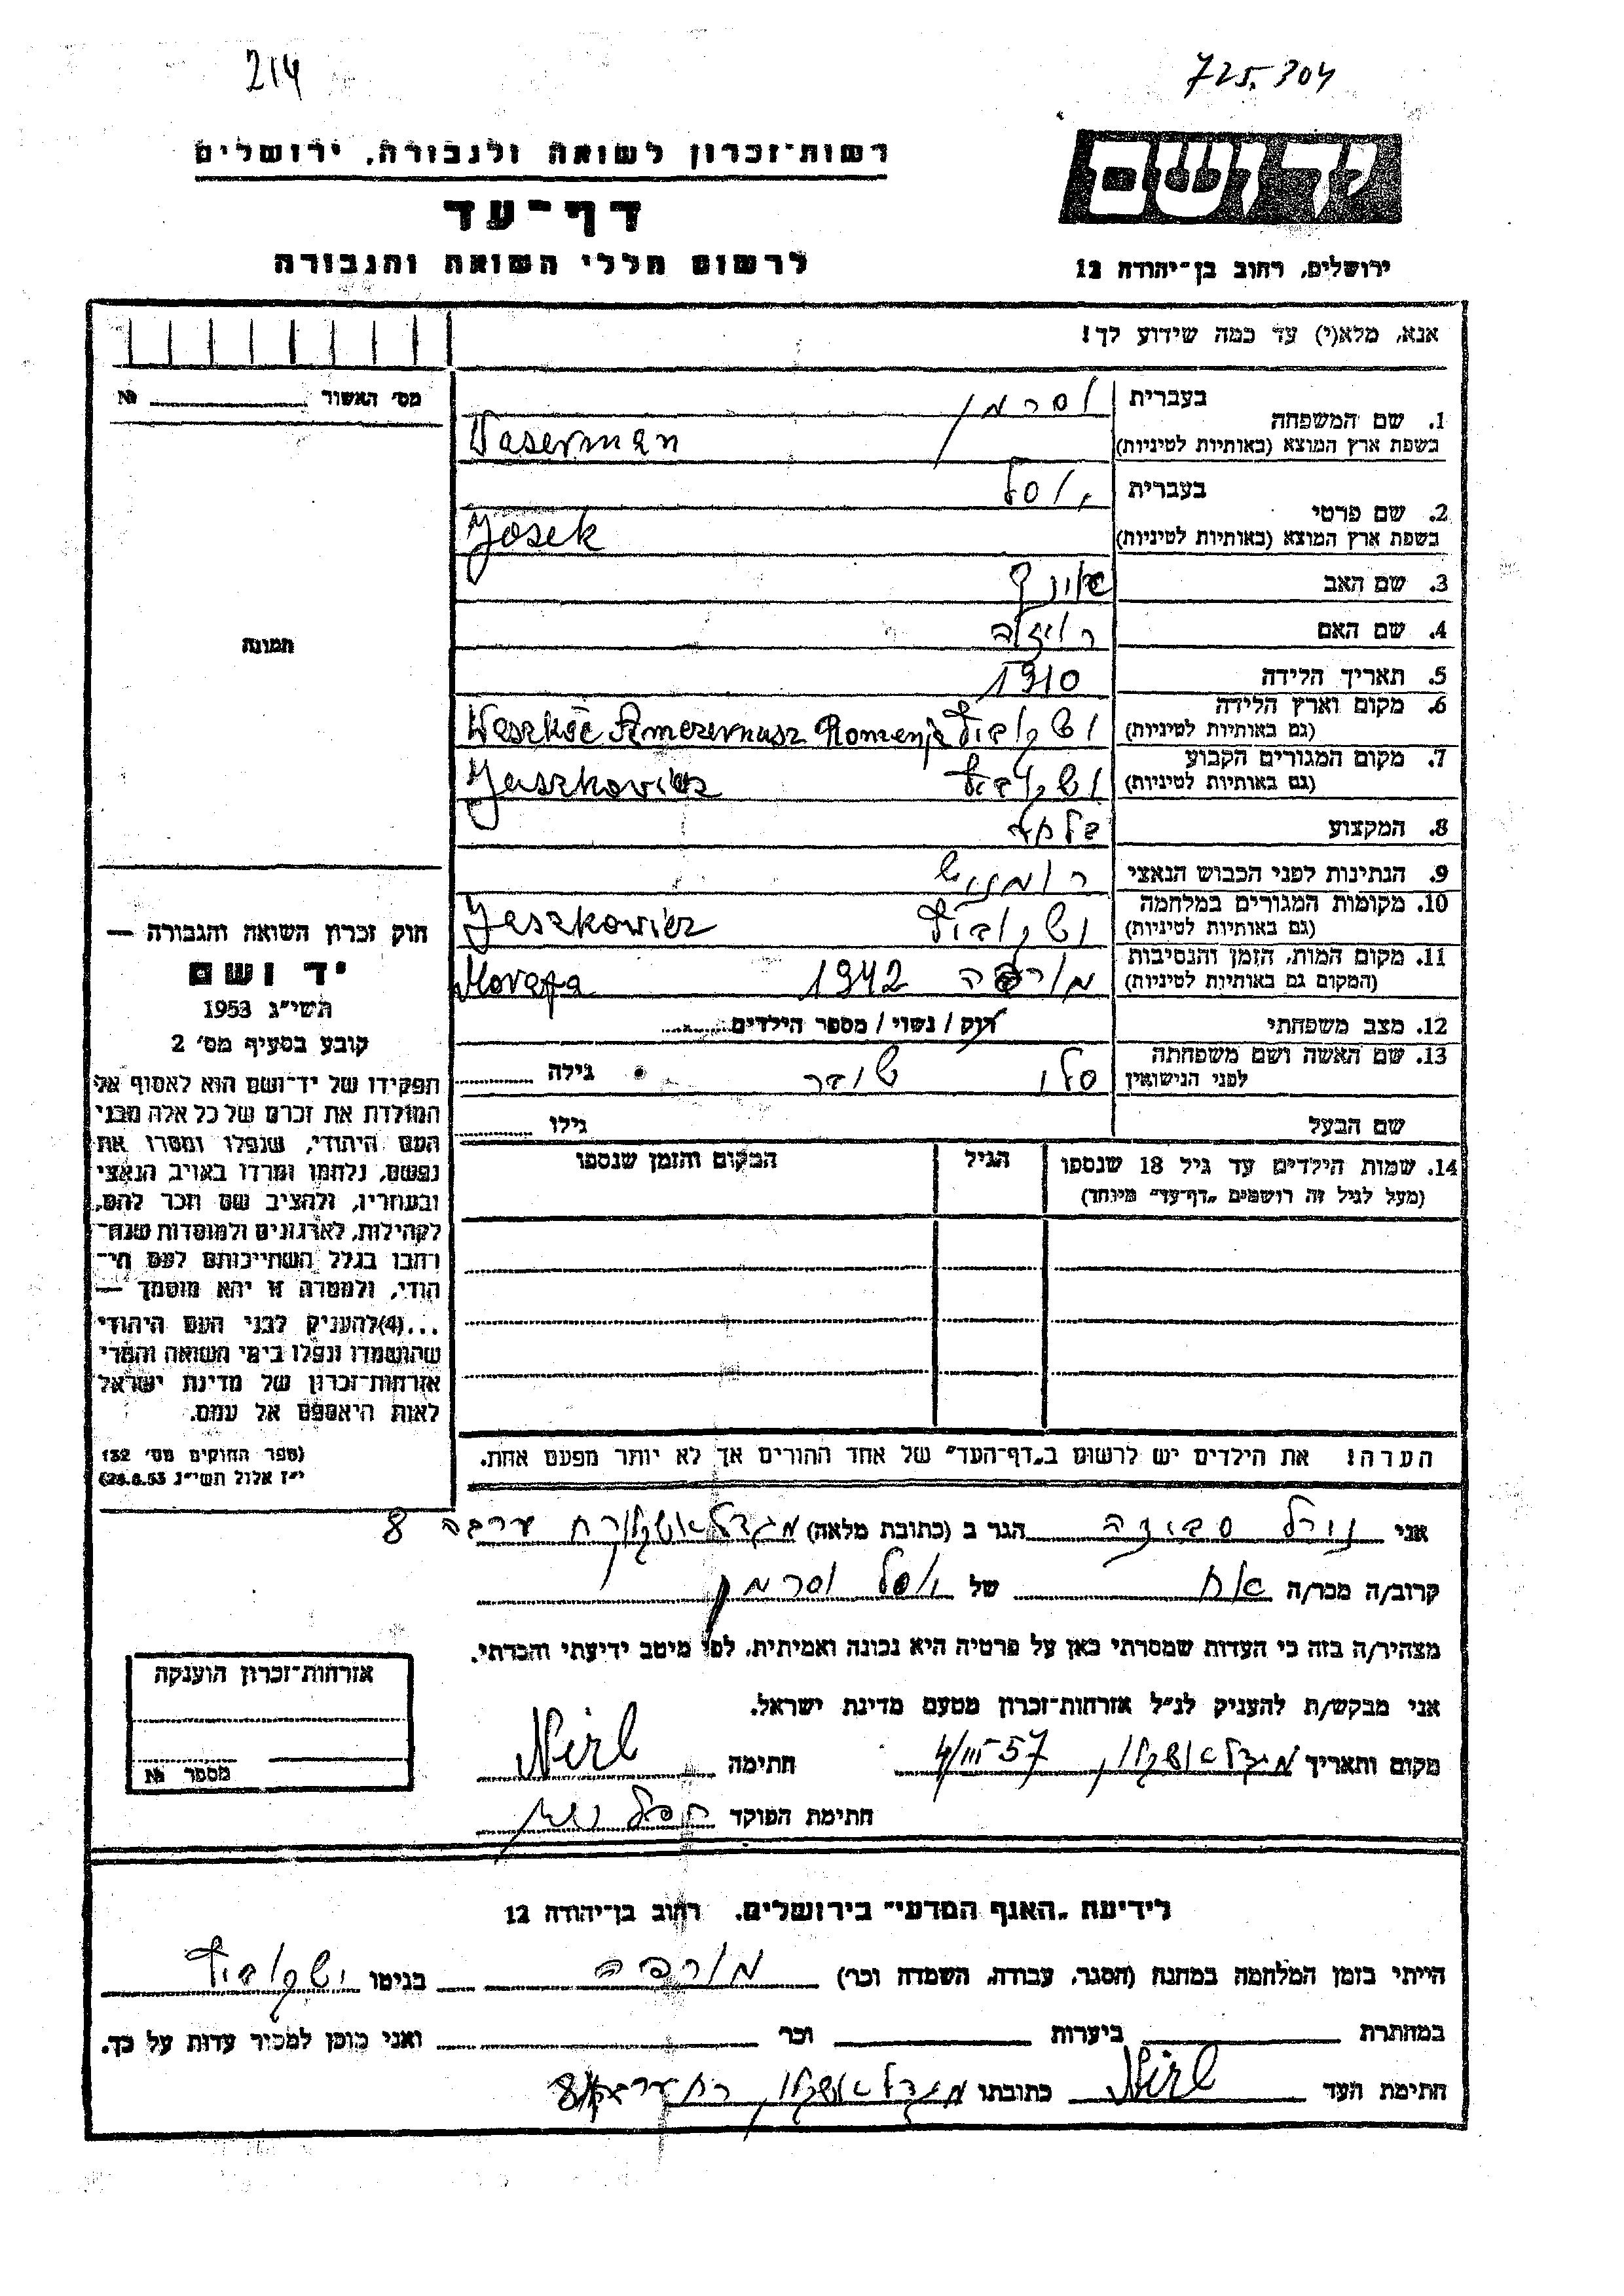 214
725.304
ידושם
רשות־זכרון לשואה ולגבורה, ירושלים
דף־עד
לרשום חללי השואה והגבורה
ירושלים, רחוב בן־יהודה 12
אנא, מלא(י) עד כמה שידוע לך!
מס׳ האשור № 
1. שם המשפחה בעברית וסרמן
בשפת ארץ המוצא (באותיות לטיניות) Waserman
2. שם פרטי בעברית יוסל
בשפת ארץ המוצא (באותיות לטיניות) Josek
3. שם האב
4. שם האם רויזה
5. תאריך הלידה 1910
6. מקום וארץ הלידה
(גם באותיות לטיניות)
7. מקום המגורים הקבוע
(גם באותיות לטיניות) Jaszkowicz
8. המקצוע
9. הנתינות לפני הכבוש הנאצי
10. מקומות המגורים במלחמה
(גם באותיות לטיניות) Jeszkowicz
11. מקום המות, הזמן והנסיבות מורפה 1942
(המקום גם באותיות לטיניות) Morafa
12. מצב משפחתי רוק / נשוי / מספר הילדים
13. שם האשה ושם משפחתה
לפני הנישואין גילה
שם הבעל גילו
14. שמות הילדים עד גיל 18 שנספו הגיל המקום והזמן שנספו
(מעל לגיל זה רושמים „דף־עד" מיוחד)
תמונה
חוק זכרון השואה והגבורה —
יד ושם
תשי״ג 1953
קובע בסעיף מס׳ 2
תפקידו של יד־ושם הוא לאסוף אל
המולדת את זכרם של כל אלה מבני
העם היהודי, שנפלו ומסרו את
נפשם, נלחמו ומרדו באויב הנאצי
ובעוזריו, ולהציב שם וזכר להם,
לקהילות, לארגונים ולמוסדות שנח־
רבו בגלל השתייכותם לעם הי־
הודי, ולמטרה זו יהא מוסמך —
...(4)להעניק לבני העם היהודי
שהושמדו ונפלו בימי השואה והמרי
אזרחות־זכרון של מדינת ישראל
לאות היאספם אל עמם.
(ספר החוקים מס׳ 132
י״ז אלול תשי״ג 28.8.53)
הערה! את הילדים יש לרשום ב„דף־העד" של אחד ההורים אך לא יותר מפעם אחת.
אני הגר ב (כתובת מלאה) 8
קרוב/ה מכר/ה אח של יוסל וסרמן
מצהיר/ה בזה כי העדות שמסרתי כאן על פרטיה היא נכונה ואמיתית, לפי מיטב ידיעתי והכרתי.
אני מבקש/ת להעניק לנ״ל אזרחות־זכרון מטעם מדינת ישראל.
מקום ותאריך מיגדל אשקלון, 4/III 57 חתימה Nirl
חתימת הפוקד
אזרחות־זכרון הוענקה
מספר №
לידיעת „האגף המדעי" בירושלים, רחוב בן־יהודה 12
הייתי בזמן המלחמה במחנה (הסגר, עבודה, השמדה וכר) מורפה בגיטו
במחתרת ביערות וכר ואני מוכן למכיר עדות על כך.
חתימת העד Nirl כתובתו מיגדל אשקלון,